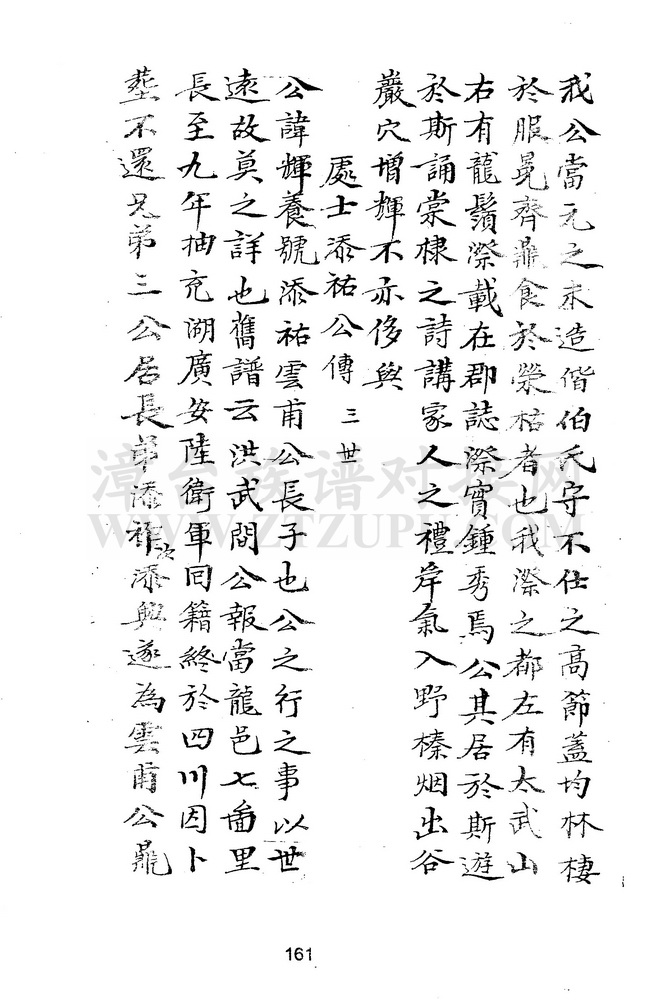 我公當元之末造偕伯氏守不仕之高節蓋均林棲
於服冕齊鼎食於榮枯者也我漈之都左有太武山
右有龍鬚漈載在郡誌漈實鍾秀焉公其居於斯遊
於斯誦棠棣之詩講家人之禮岸氣入野榛烟出谷
巖穴增輝不亦侈與
處士添祐公傳 三世
公諱輝養號添祐雲甫公長子也公之行之事以世
遠故莫之詳也舊譜云洪武間公報當龍邑七啚里
長至九年抽充湖廣安陸衛軍囘籍終於四川因卜
塟不還兄弟三公居長弟添祚次添與遂為雲甫公鼎
漳台族谱对接网
WWW.ZTZUPU.COM
161